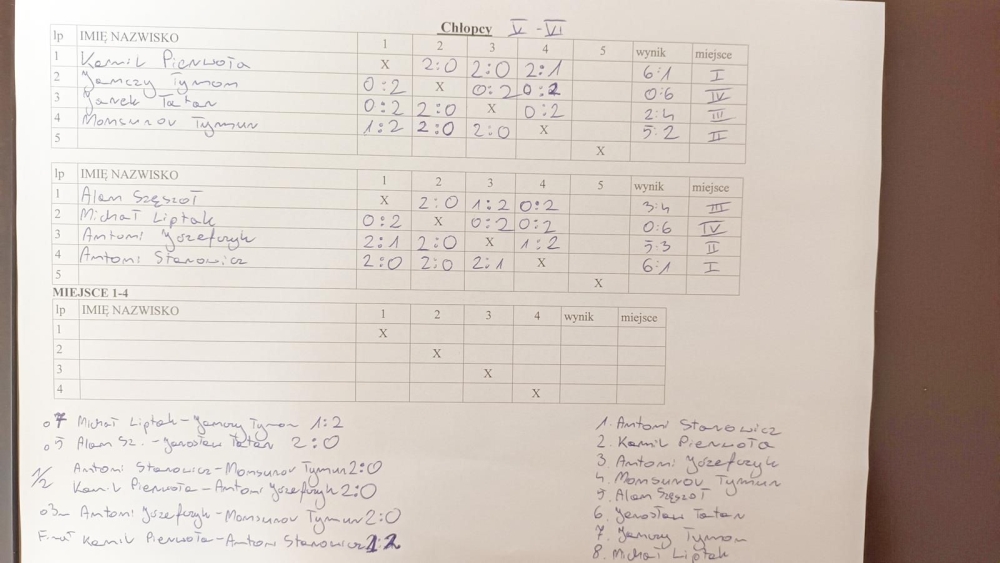 Chłopcy V - VI
lp IMIĘ NAZWISKO 1 2 3 4 5 wynik miejsce
1 Kamil Pierwoła X 2:0 2:0 2:1 6:1 I
2 Jamczy Tymon 0:2 X 0:2 0:2 0:6 IV
3 Janek Tatan 0:2 2:0 X 0:2 2:4 III
4 Monsurov Tymur 1:2 2:0 2:0 X 5:2 II
5 X
lp IMIĘ NAZWISKO 1 2 3 4 5 wynik miejsce
1 Alan Szęszoł X 2:0 1:2 0:2 3:4 III
2 Michał Liptak 0:2 X 0:2 0:2 0:6 IV
3 Antoni Józefczyk 2:1 2:0 X 1:2 5:3 II
4 Antoni Stanowicz 2:0 2:0 2:1 X 6:1 I
5 X
MIEJSCE 1-4
lp IMIĘ NAZWISKO 1 2 3 4 wynik miejsce
1 X
2 X
3 X
4 X
o 7 Michał Liptak - Jamczy Tymon 1:2
o 5 Alan Sz. - Jarosław Tatan 2:0
1/2 Antoni Stanowicz - Monsurov Tymur 2:0
Kamil Pierwoła - Antoni Józefczyk 2:0
o 3 - Antoni Józefczyk - Monsurov Tymur 2:0
Finał Kamil Pierwoła - Antoni Stanowicz 1:2
1. Antoni Stanowicz
2. Kamil Pierwoła
3. Antoni Józefczyk
4. Monsurov Tymur
5. Alan Szęszoł
6. Jarosław Tatan
7. Jamczy Tymon
8. Michał Liptak